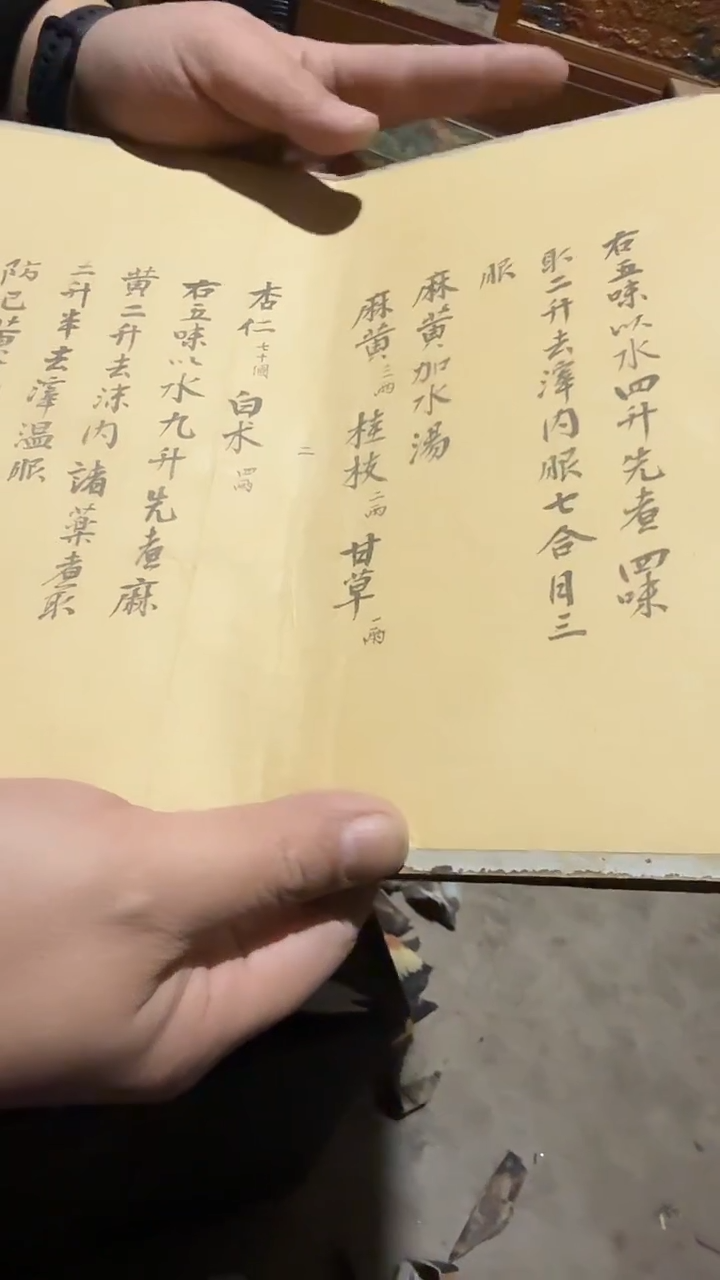 右五味以水四升先煮四味
取二升去滓内服七合日三
服
麻黄加水湯
麻黄三两 桂枝二两 甘草一两
二
杏仁七十個 白术四两
右五味以水九升先煮麻
黄二升去沫内諸藥煮取
二升半去滓温服
防已黄